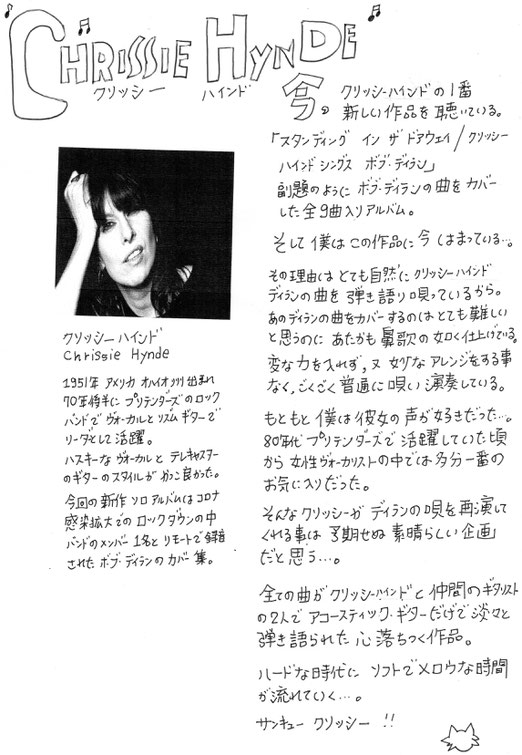 CHRISSIE HYNDE
クリッシー ハインド
クリッシーハインド
Chrissie Hynde
1951年 アメリカ オハイオ州 出まれ
70年代半に プリテンダーズのロック
バンドで ヴォーカルと リズム ギターで
リーダとして 活躍。
ハスキーな ヴォーカルと テレキャスター
のギターのスタイルが かっこ良かった。
今回の新作 ソロアルバムは コロナ
感染拡大での ロックダウンの中
バンドのメンバー 1名と リモートで録音
された ボブ・ディランの カバー 集。
今。クリッシーハインドの1番
新しい作品を聴いている。
「スタンディング イン ザ ドアウェイ/クリッシー
ハインド シングス ボブ・ディラン」
副題のように ボブ・ディランの曲をカバー
した全9曲入りアルバム。
そして 僕は この作品に 今 はまっている…。
その理由は とても自然に クリッシーハインド
ディランの曲を 弾き語り唄っているから。
あのディランの曲をカバーするのはとても難しい
と思うのに あたかも 鼻歌の 如く仕上げている。
変な力を入れず、又 妙なアレンジをする事
なく、ごくごく 普通に 唄い 演奏している。
もともと 僕は 彼女の 声が好きだった…。
80年代 プリテンダーズで 活躍していた頃
から 女性ヴォーカリストの中では多分一番の
お気に入りだった。
そんなクリッシーが ディランの唄を再演して
くれる事は 予期せぬ 素晴らしい企画
だと思う…。
全ての曲が クリッシーハインドと 仲間のギタリスト
の2人で アコースティック・ギターだけで 淡々と
弾き語られた 心落ちつく作品。
ハードな時代に ソフトでメロウな時間
が流れていく…。
サンキュー クリッシー !!